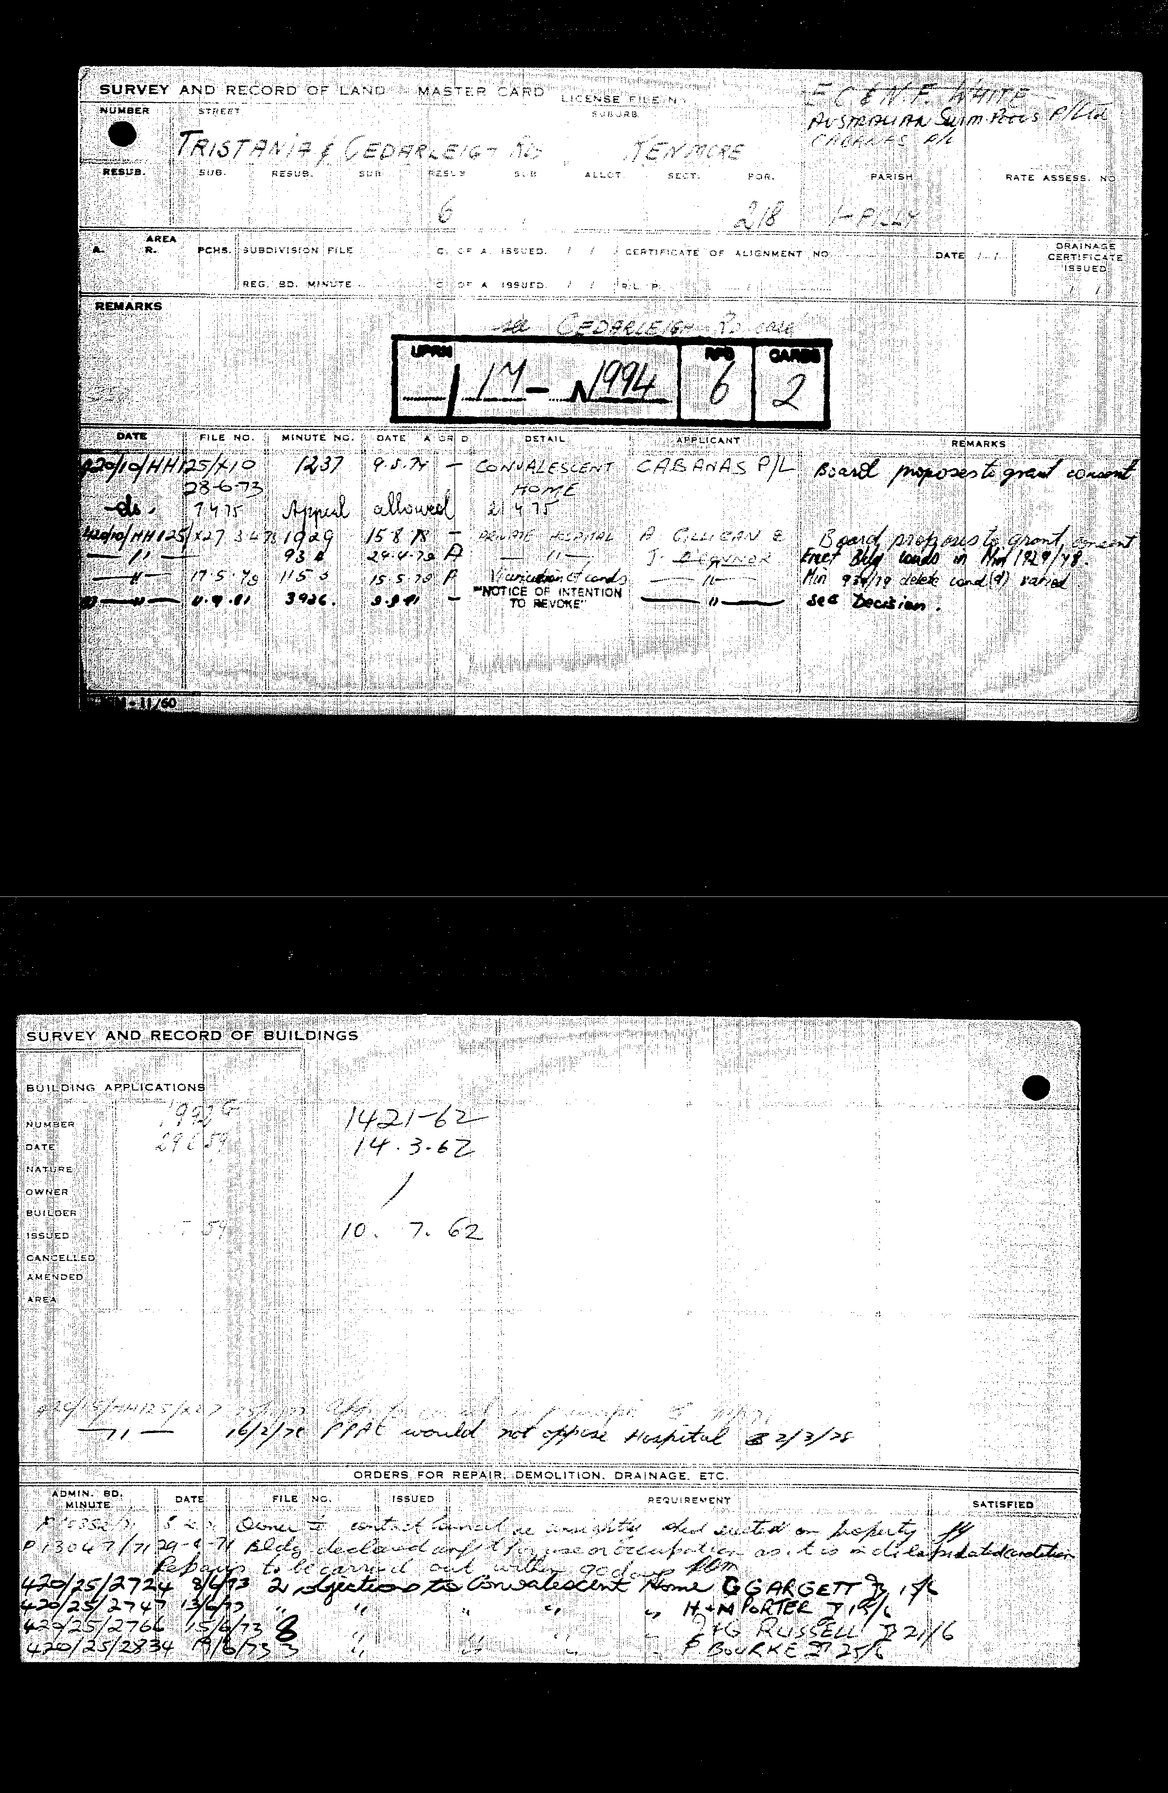 SURVEY AND RECORD OF LAND MASTER CARD LICENSE FILE No.
E C & N. F. WHITE
AUSTRALIAN Swim. Pools P/Ltd
CABANAS P/L
NUMBER STREET SUBURB
TRISTANIA & CEDARLEIGH RD KENMORE
RESUB. SUB. RESUB. SUB RESUB SUB ALLOT. SECT. POR. PARISH RATE ASSESS. NO.
6 218 I-PILLY
A. AREA R. PCHS. SUBDIVISION FILE C. OF A. ISSUED. / / CERTIFICATE OF ALIGNMENT NO. DATE / / DRAINAGE CERTIFICATE ISSUED
REG. BD. MINUTE C. OF A. ISSUED. / / R.L.P. / /
REMARKS
see CEDARLEIGH Rd card
UPRN RPD CARDS
17- 1994 6 2
DATE FILE NO. MINUTE NO. DATE A OR D DETAIL APPLICANT REMARKS
420/10/HH125/X10 1237 9.5.74 - CONVALESCENT CABANAS P/L Board proposes to grant consent
28-6-73 HOME
-do. 7 4 75 Appeal allowed 21 4 75
420/10/HH125/X27 3 4 78 1929 15.8.78 - PRIVATE HOSPITAL A. GILLIGAN & Board proposes to grant consent
— " — 93 29.4.79 A — " — J. O'CONNOR Erect Bldg conds in Min 1929/78.
— " — 17.5.79 115 15.5.79 A Variation of conds — " — Min 939/79 delete cond (9) varied
— " — 11.9.81 3926. 9.9.81 - "NOTICE OF INTENTION TO REVOKE" — " — see Decision.
11/60
SURVEY AND RECORD OF BUILDINGS
BUILDING APPLICATIONS
NUMBER 1992G 1421-62
DATE 29 6 59 14.3.62
NATURE
OWNER /
BUILDER
ISSUED 59 10. 7. 62
CANCELLED
AMENDED
AREA
420/15/HH125/X27
— 11 — 16/2/78 PPAC would not oppose Hospital 2/3/78
ORDERS FOR REPAIR, DEMOLITION, DRAINAGE, ETC.
ADMIN. BD. MINUTE DATE FILE NO. ISSUED REQUIREMENT SATISFIED
Owner to contact Council re unsightly shed erected on property
P13047/71 29-4-71 Bldg declared unfit for use or occupation as it is in dilapidated condition
Repairs to be carried out within 90 days
420/25/2724 8/6/73 2 objections to Convalescent Home G GARGETT 15/6
420/25/2747 13/6/73 " " " " " H & M PORTER 19/6
420/25/2766 15/6/73 8 " " " " RUSSELL 21/6
420/25/2834 19/6/73 3 " " " " P. BOURKE 25/6